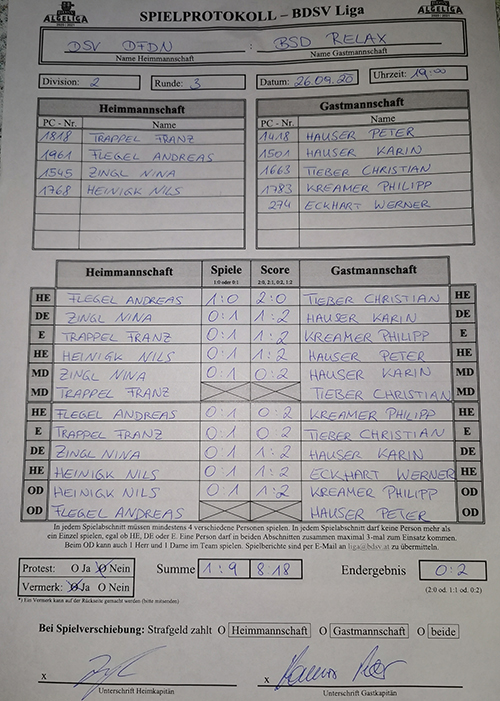 ALGELIGA
SPIELPROTOKOLL – BDSV Liga
ALGELIGA
DSV DFDN : BSD RELAX
Name Heimmannschaft Name Gastmannschaft
Division: 2 Runde: 3 Datum: 26.09.20 Uhrzeit: 19:00
Heimmannschaft Gastmannschaft
PC - Nr. Name PC - Nr. Name
1818 TRAPPEL FRANZ 1418 HAUSER PETER
1961 FLEGEL ANDREAS 1501 HAUSER KARIN
1545 ZINGL NINA 1663 TIEBER CHRISTIAN
1768 HEINIGK NILS 1783 KREAMER PHILIPP
274 ECKHART WERNER
Heimmannschaft Spiele Score Gastmannschaft
1:0 oder 0:1 2:0, 2:1, 0:2, 1:2
HE FLEGEL ANDREAS 1:0 2:0 TIEBER CHRISTIAN HE
DE ZINGL NINA 0:1 1:2 HAUSER KARIN DE
E TRAPPEL FRANZ 0:1 1:2 KREAMER PHILIPP E
HE HEINIGK NILS 0:1 1:2 HAUSER PETER HE
MD ZINGL NINA 0:1 0:2 HAUSER KARIN MD
MD TRAPPEL FRANZ TIEBER CHRISTIAN MD
HE FLEGEL ANDREAS 0:1 0:2 KREAMER PHILIPP HE
E TRAPPEL FRANZ 0:1 0:2 TIEBER CHRISTIAN E
DE ZINGL NINA 0:1 1:2 HAUSER KARIN DE
HE HEINIGK NILS 0:1 1:2 ECKHART WERNER HE
OD HEINIGK NILS 0:1 1:2 KREAMER PHILIPP OD
OD FLEGEL ANDREAS HAUSER PETER OD
In jedem Spielabschnitt müssen mindestens 4 verschiedene Personen spielen. In jedem Spielabschnitt darf keine Person mehr als
ein Einzel spielen, egal ob HE, DE oder E. Eine Person darf in beiden Abschnitten zusammen maximal 3-mal zum Einsatz kommen.
Beim OD kann auch 1 Herr und 1 Dame im Team spielen. Spielberichte sind per E-Mail an liga@bdsv.at zu übermitteln.
Protest: O Ja O Nein Summe 1:9 8:18 Endergebnis 0:2
Vermerk: O Ja O Nein (2:0 od. 1:1 od. 0:2)
*) Ein Vermerk kann auf der Rückseite gemacht werden (bitte mitsenden)
Bei Spielverschiebung: Strafgeld zahlt O Heimmannschaft O Gastmannschaft O beide
x x
Unterschrift Heimkapitän Unterschrift Gastkapitän